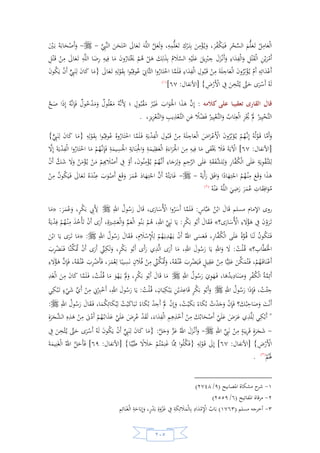 مُعَامِلُ السِّحْرِ فَيَكْفُرَ، وَيُؤْمِنُ بِتَرْكِ تَعَلُّمِهِ، وَلَعَلَّ اللَّهَ تَعَالَى امْتَحَنَ النَّبِيَّ – ﷺ – وَأَصْحَابَهُ بَيْنَ
أَمْرَيْنِ: الْقَتْلِ وَالْفِدَاءِ، وَأَنْزَلَ جِبْرِيلَ عَلَيْهِ السَّلَامُ بِذَلِكَ هَلْ هُمْ يَخْتَارُونَ مَا فِيهِ رِضَا اللَّهِ تَعَالَى مِنْ قَتْلِ
أَعْدَائِهِ أَمْ يُؤْثِرُونَ الْعَاجِلَةَ مِنْ قَبُولِ الْفِدَاءِ، فَلَمَّا اخْتَارُوا الثَّانِيَ عُوقِبُوا بِقَوْلِهِ تَعَالَى {مَا كَانَ لِنَبِيٍّ أَنْ يَكُونَ
لَهُ أَسْرَى حَتَّى يُثْخِنَ فِي الْأَرْضِ} [الأنفال: ٦٧]
قال القارى تعقيبا على كلامه : إِنَّ هَذَا الْجَوَابَ غَيْرُ مَقْبُولٍ ; لِأَنَّهُ مَعْلُولٌ وَمَدْخُولٌ فَإِنَّهُ إِذَا صَحَّ
التَّخْيِيرُ، لَمْ يَجُزِ الْعِتَابُ وَالتَّعْيِيرُ فَضْلًا عَنِ التَّعْذِيبِ وَالتَّعْزِيرِ .
وَأَمَّا قَوْلُهُ إِنَّهُمْ يُؤْثِرُونَ الْأَعْرَاضَ الْعَاجِلَةَ مِنْ قَبُولِ الْفِدْيَةِ فَلَمَّا اخْتَارُوهُ عُوقِبُوا بِقَوْلِهِ {مَا كَانَ لِنَبِيٍّ}
[الأنفال: ٦٧] الْآيَةَ فَلَا يَخْفَى مَا فِيهِ مِنَ الْجَرَاءَةِ الْعَظِيمَةِ وَالْجِنَايَةِ الْجَسِيمَةِ فَإِنَّهُمْ مَا اخْتَارُوا الْفِدْيَةَ إِلَّا
لِلتَّقْوِيَةِ عَلَى الْكُفَّارِ، وَلِلشَّفَقَةِ عَلَى الرَّحِمِ وَلِرَجَاءِ أَنَّهُمْ يُؤْمِنُونَ، أَوْ فِي أَصْلَابِهِمْ مَنْ يُؤْمِنُ وَلَا شَكَّ أَنَّ
هَذَا وَقَعَ مِنْهُمُ اجْتِهَادًا وَافَقَ رَأْيَهُ – ﷺ – غَايَتُهُ أَنَّ اجْتِهَادَ عُمَرَ وَقَعَ أَصْوَبَ عِنْدَهُ تَعَالَى فَيَكُونُ مِنْ
مُوَافَقَاتِ عُمَرَ رَضِيَ اللَّهُ عَنْهُ (٢)
روى الإمام مسلم قَالَ ابْنُ عَبَّاسٍ: فَلَمَّا أَسَرُوا الْأُسَارَى، قَالَ رَسُولُ اللهِ ﷺ لِأَبِي بَكْرٍ، وَعُمَرَ: «مَا
تَرَوْنَ فِي هَؤُلَاءِ الْأُسَارَى؟» فَقَالَ أَبُو بَكْرٍ: يَا نَبِيَّ اللهِ، هُمْ بَنُو الْعَمِّ وَالْعَشِيرَةِ، أَرَى أَنْ تَأْخُذَ مِنْهُمْ فِدْيَةً
فَتَكُونُ لَنَا قُوَّةً عَلَى الْكُفَّارِ، فَعَسَى اللهُ أَنْ يَهْدِيَهُمْ لِلْإِسْلَامِ، فَقَالَ رَسُولُ اللهِ ﷺ: «مَا تَرَى يَا ابْنَ
الْخَطَّابِ؟» قُلْتُ: لَا وَاللهِ يَا رَسُولَ اللهِ، مَا أَرَى الَّذِي رَأَى أَبُو بَكْرٍ، وَلَكِنِّي أَرَى أَنْ تُمَكِّنَّا فَنَضْرِبَ
أَعْنَاقَهُمْ، فَتُمَكِّنَ عَلِيًّا مِنْ عَقِيلٍ فَيَضْرِبَ عُنُقَهُ، وَتُمَكِّنِّي مِنْ فُلَانٍ نَسِيبًا لِعُمَرَ، فَأَضْرِبَ عُنُقَهُ، فَإِنَّ هَؤُلَاءِ
أَئِمَّةُ الْكُفْرِ وَصَنَادِيدُهَا، فَهَوِيَ رَسُولُ اللهِ ﷺ مَا قَالَ أَبُو بَكْرٍ، وَلَمْ يَهْوَ مَا قُلْتُ، فَلَمَّا كَانَ مِنَ الْغَدِ
جِئْتُ، فَإِذَا رَسُولُ اللهِ ﷺ وَأَبُو بَكْرٍ قَاعِدَيْنِ يَبْكِيَانِ، قُلْتُ: يَا رَسُولَ اللهِ، أَخْبِرْنِي مِنْ أَيِّ شَيْءٍ تَبْكِي
أَنْتَ وَصَاحِبُكَ؟ فَإِنْ وَجَدْتُ بُكَاءً بَكَيْتُ، وَإِنْ لَمْ أَجِدْ بُكَاءً تَبَاكَيْتُ لِبُكَائِكُمَا، فَقَالَ رَسُولُ اللهِ ﷺ:
" أَبْكِي لِلَّذِي عَرَضَ عَلَيَّ أَصْحَابُكَ مِنْ أَخْذِهِمِ الْفِدَاءَ، لَقَدْ عُرِضَ عَلَيَّ عَذَابُهُمْ أَدْنَى مِنْ هَذِهِ الشَّجَرَةِ
– شَجَرَةٍ قَرِيبَةٍ مِنْ نَبِيِّ اللهِ ﷺ – وَأَنْزَلَ اللهُ عَزَّ وَجَلَّ: {مَا كَانَ لِنَبِيٍّ أَنْ يَكُونَ لَهُ أَسْرَى حَتَّى يُثْخِنَ فِي
الْأَرْضِ} [الأنفال: ٦٧] إِلَى قَوْلِهِ {فَكُلُوا مِمَّا غَنِمْتُمْ حَلَالًا طَيِّبًا} [الأنفال: ٦٩] فَأَحَلَّ اللهُ الْغَنِيمَةَ
لَهُمْ (٣)
١- شرح مشكاة المصابيح (٩/ ٢٧٤٨)
٢- مرقاة المفاتيح (٦/ ٢٥٥٩)
٣- أخرجه مسلم (١٧٦٣) بَابُ الْإِمْدَادِ بِالْمَلَائِكَةِ فِي غَزْوَةِ بَدْرٍ، وَإِبَاحَةِ الْغَنَائِمِ
٢٠٣